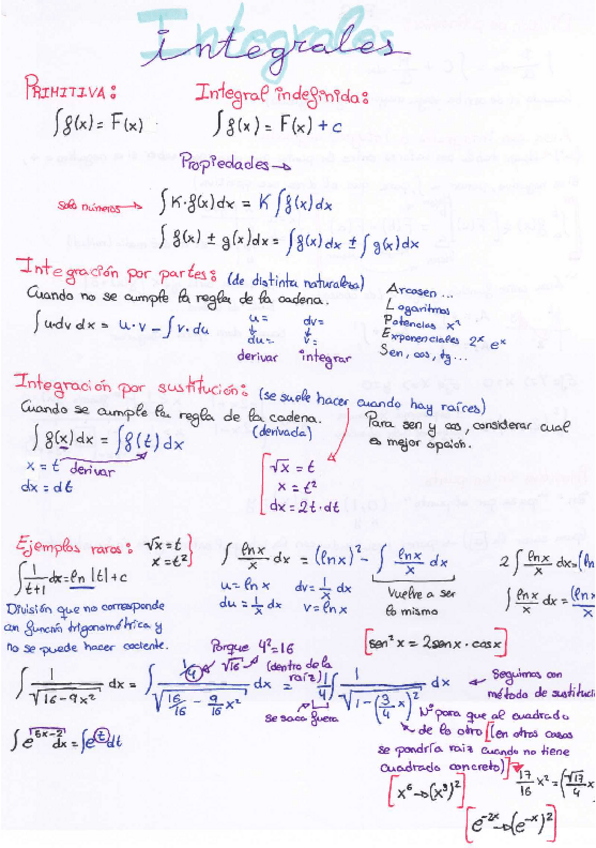 Integrales
integrales
PRIMITIVA: Integral indefinida:
∫f(x) = F(x) ∫f(x) = F(x) + c
Propiedades →
Solo números → ∫K·f(x)dx = K∫f(x)dx
∫f(x) ± g(x)dx = ∫f(x)dx ± ∫g(x)dx
Integración por partes: (de distinta naturaleza)
Cuando no se cumple la regla de la cadena.
∫u·dv dx = u·v − ∫v·du
u= dv=
du= v=
derivar integrar
Arcosen...
Logaritmos
Potencias x²
Exponenciales 2ˣ eˣ
Sen, cos, tg...
Integración por sustitución: (se suele hacer cuando hay raíces)
Cuando se cumple la regla de la cadena.
(derivada)
∫f(x)dx = ∫f(t)dx
x = t derivar
dx = dt
√x = t
x = t²
dx = 2t·dt
Para sen y cos, considerar cual
es mejor opción.
Ejemplos raros: √x = t
x = t²
∫1/(t+1) dx = ln |t| + c
División que no corresponde
con función trigonométrica y
no se puede hacer cociente.
∫ lnx/x dx = (lnx)² − ∫ lnx/x dx
u = ln x dv = 1/x dx
du = 1/x dx v = lnx
Vuelve a ser
lo mismo
2∫ lnx/x dx = (ln
∫ lnx/x dx = (ln
[sen²x = 2senx·cosx]
Porque 4² = 16
√16 (dentro de la
raíz)
∫ 1/√(16−9x²) dx = ∫ (1/4)/√(16/16 − 9/16 x²) dx = (1/4)∫ 1/√(1−(3/4 x)²) dx
se saca fuera
← Seguimos con
método de sustituci
Nº para que al cuadrado
de lo otro [(en otros casos
se pondría raiz cuando no tiene
cuadrado concreto)]
17/16 x² = (√17/4 x
∫e^(5x−2) dx = ∫e^(t) dt
[x⁶ → (x³)²]
[e⁻²ˣ → (e⁻ˣ)²]